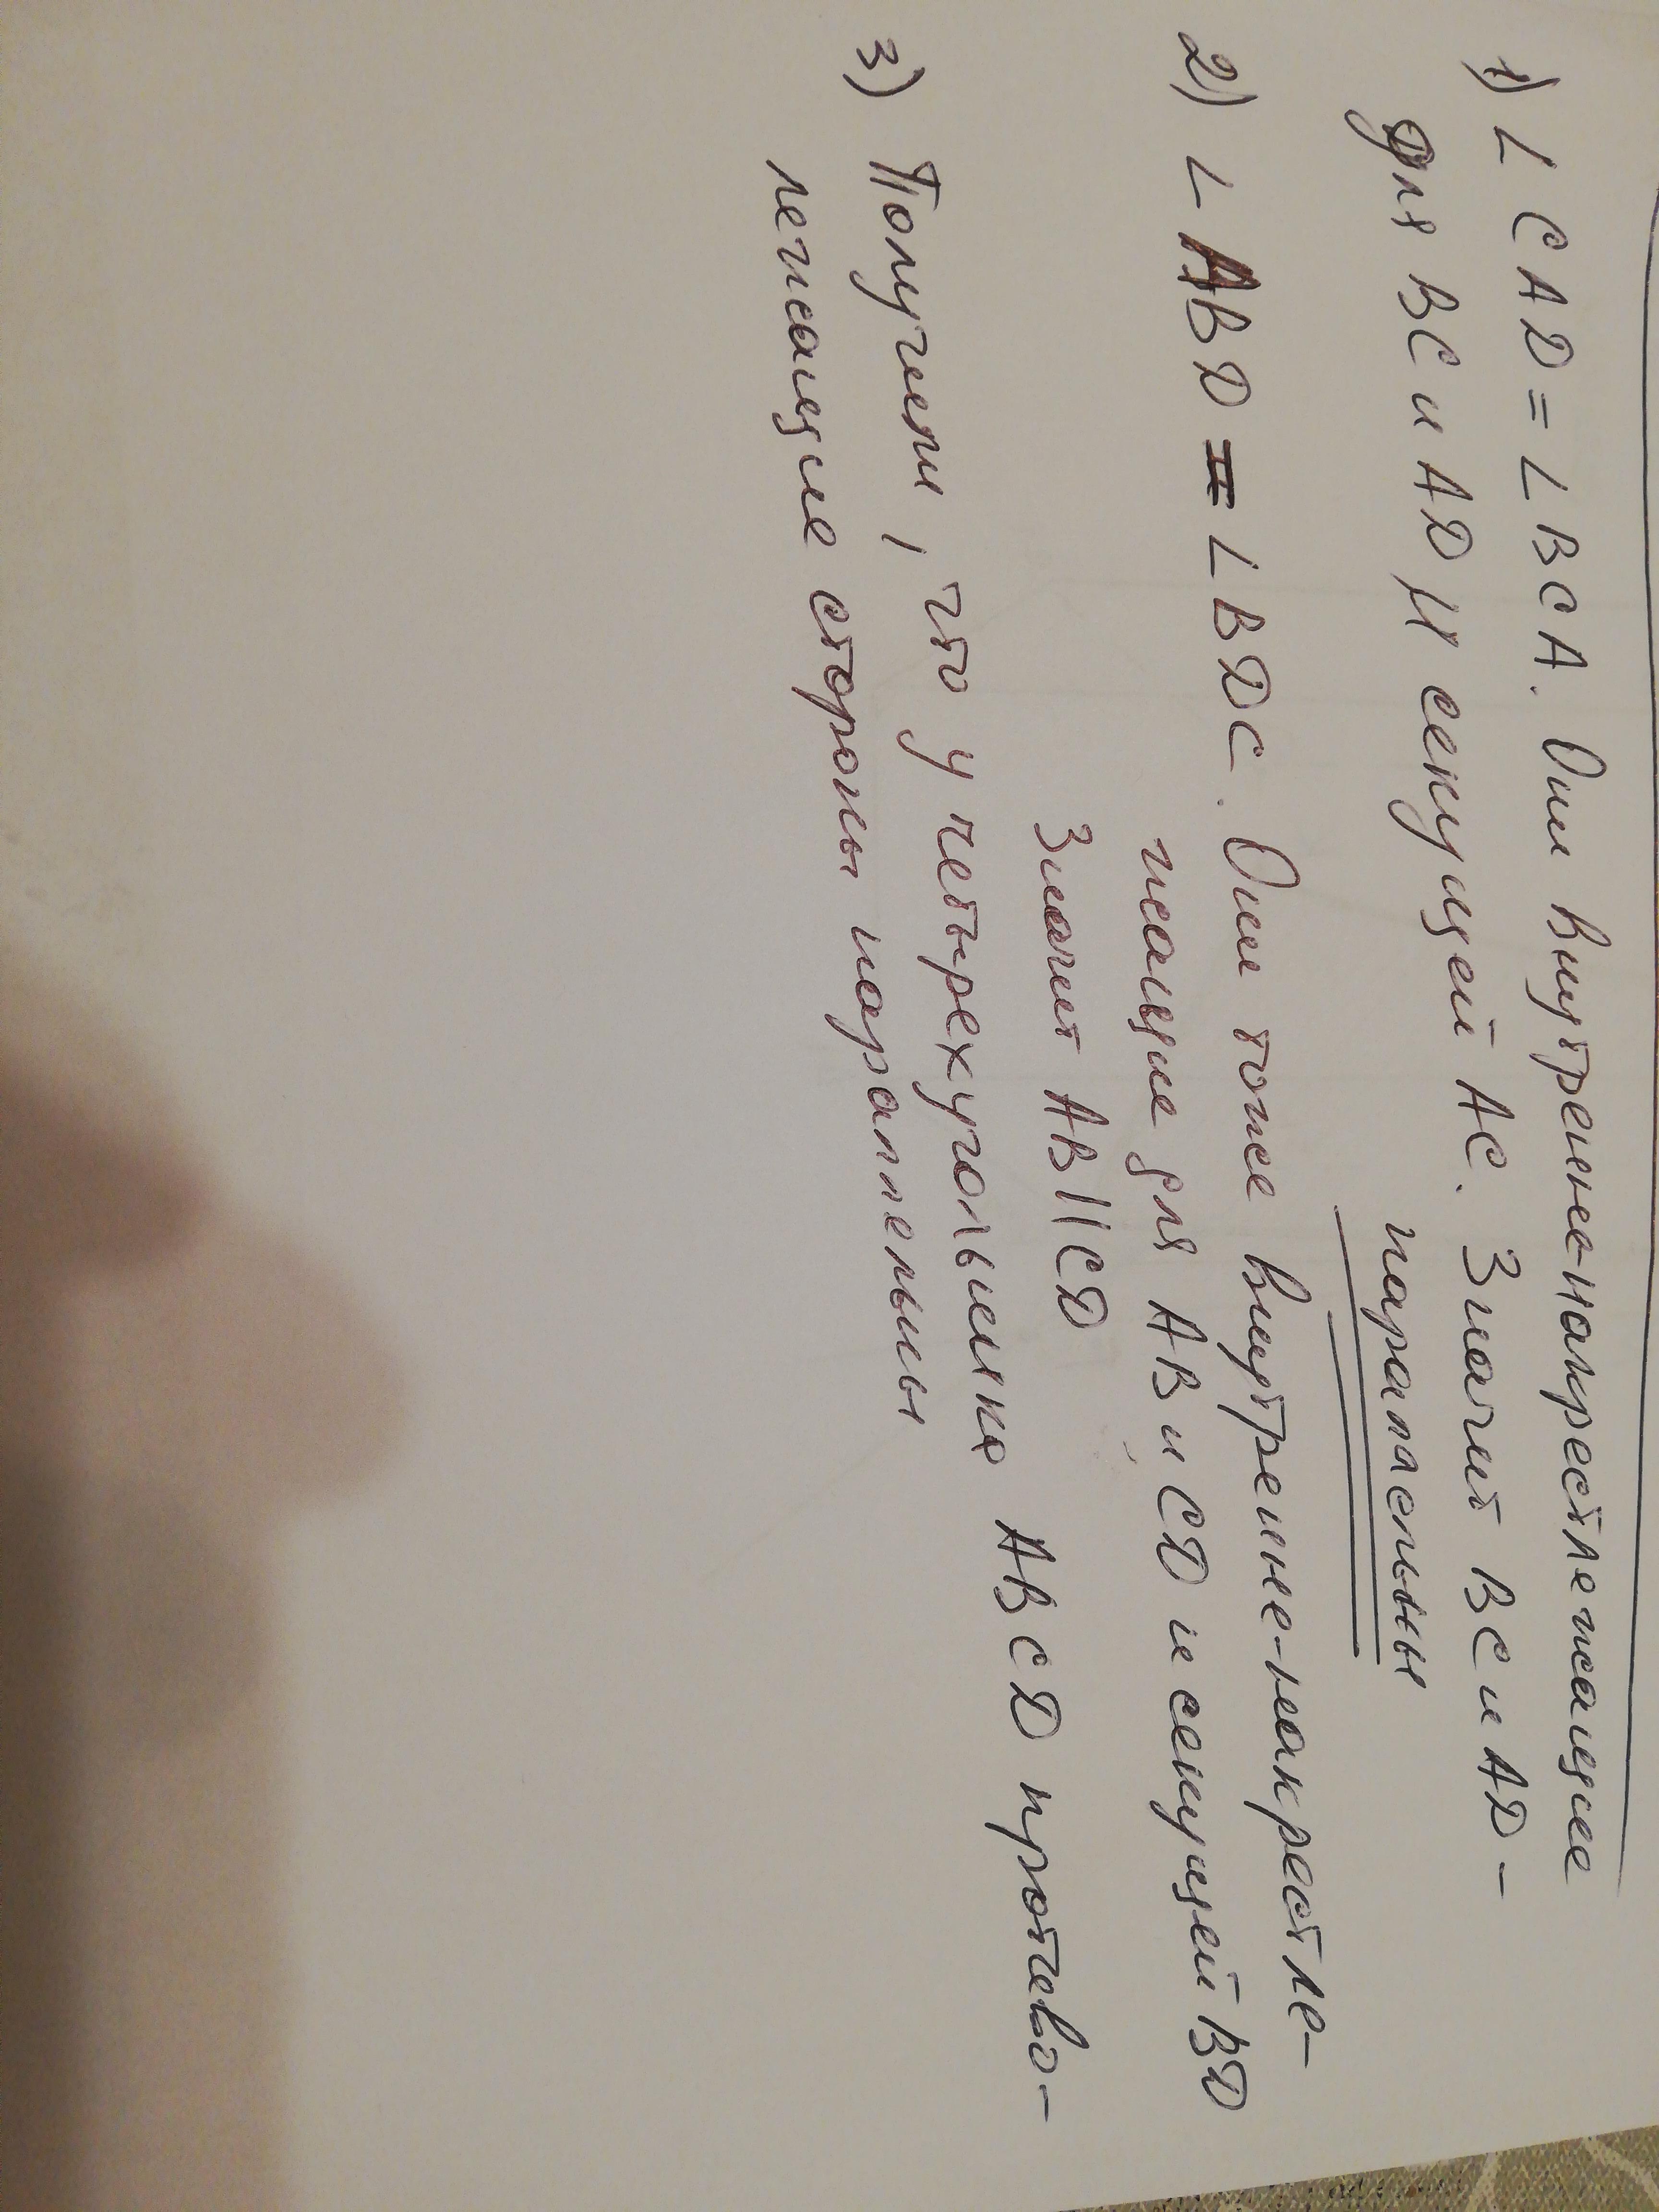 1) ∠ CAD = ∠ BCA. Они внутренне-накрестлежащие
для BC и AD и секущей AC. Значит BC и AD -
параллельны
2) ∠ ABD = ∠ BDC. Они тоже внутренне-накрестле-
жащие для AB и CD и секущей BD
Значит AB || CD
3) Получили, что у четырехугольника ABCD противо-
лежащие стороны параллельны